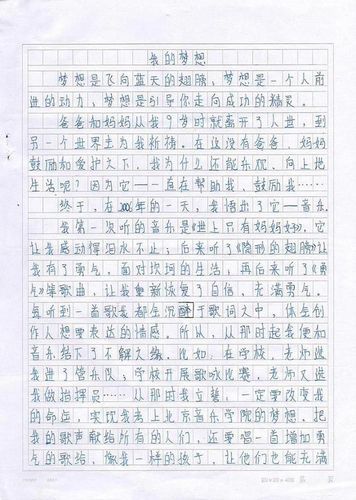 我的梦想
梦想是飞向蓝天的翅膀,梦想是一个人前
进的动力,梦想是引导你走向成功的精灵。
爸爸和妈妈从我9岁时就离开了人世,到
另一个世界去为我祈祷。在这没有爸爸、妈妈
鼓励和爱护之下,我为什么还能乐观、向上地
生活呢?因为它一一直在帮助我、鼓励我……
终于,在2006年的一天,我悟出了它——音乐。
我第一次听的音乐是《世上只有妈妈好》,它
让我感动得泪水不止;后来听了《隐形的翅膀》让
我有了勇气,面对坎坷的生活;再后来听了《勇
气》等歌曲,让我重新恢复了自信,充满勇气。
每听到一首歌我都会沉醉于歌词之中,体会创
作人想要表达的情感。所以,从那时起我便和
音乐结下了不解之缘。比如,在学校,老师选
我进了管乐队;学校开展歌咏比赛,老师又选
我做指挥员……从那时我立誓,一定要改变我
的命运,实现我考上北京音乐学院的梦想,把
我的歌声献给所有的人们,还要唱一首增加勇
气的歌给,像我一样的孩子,让他们也能充满